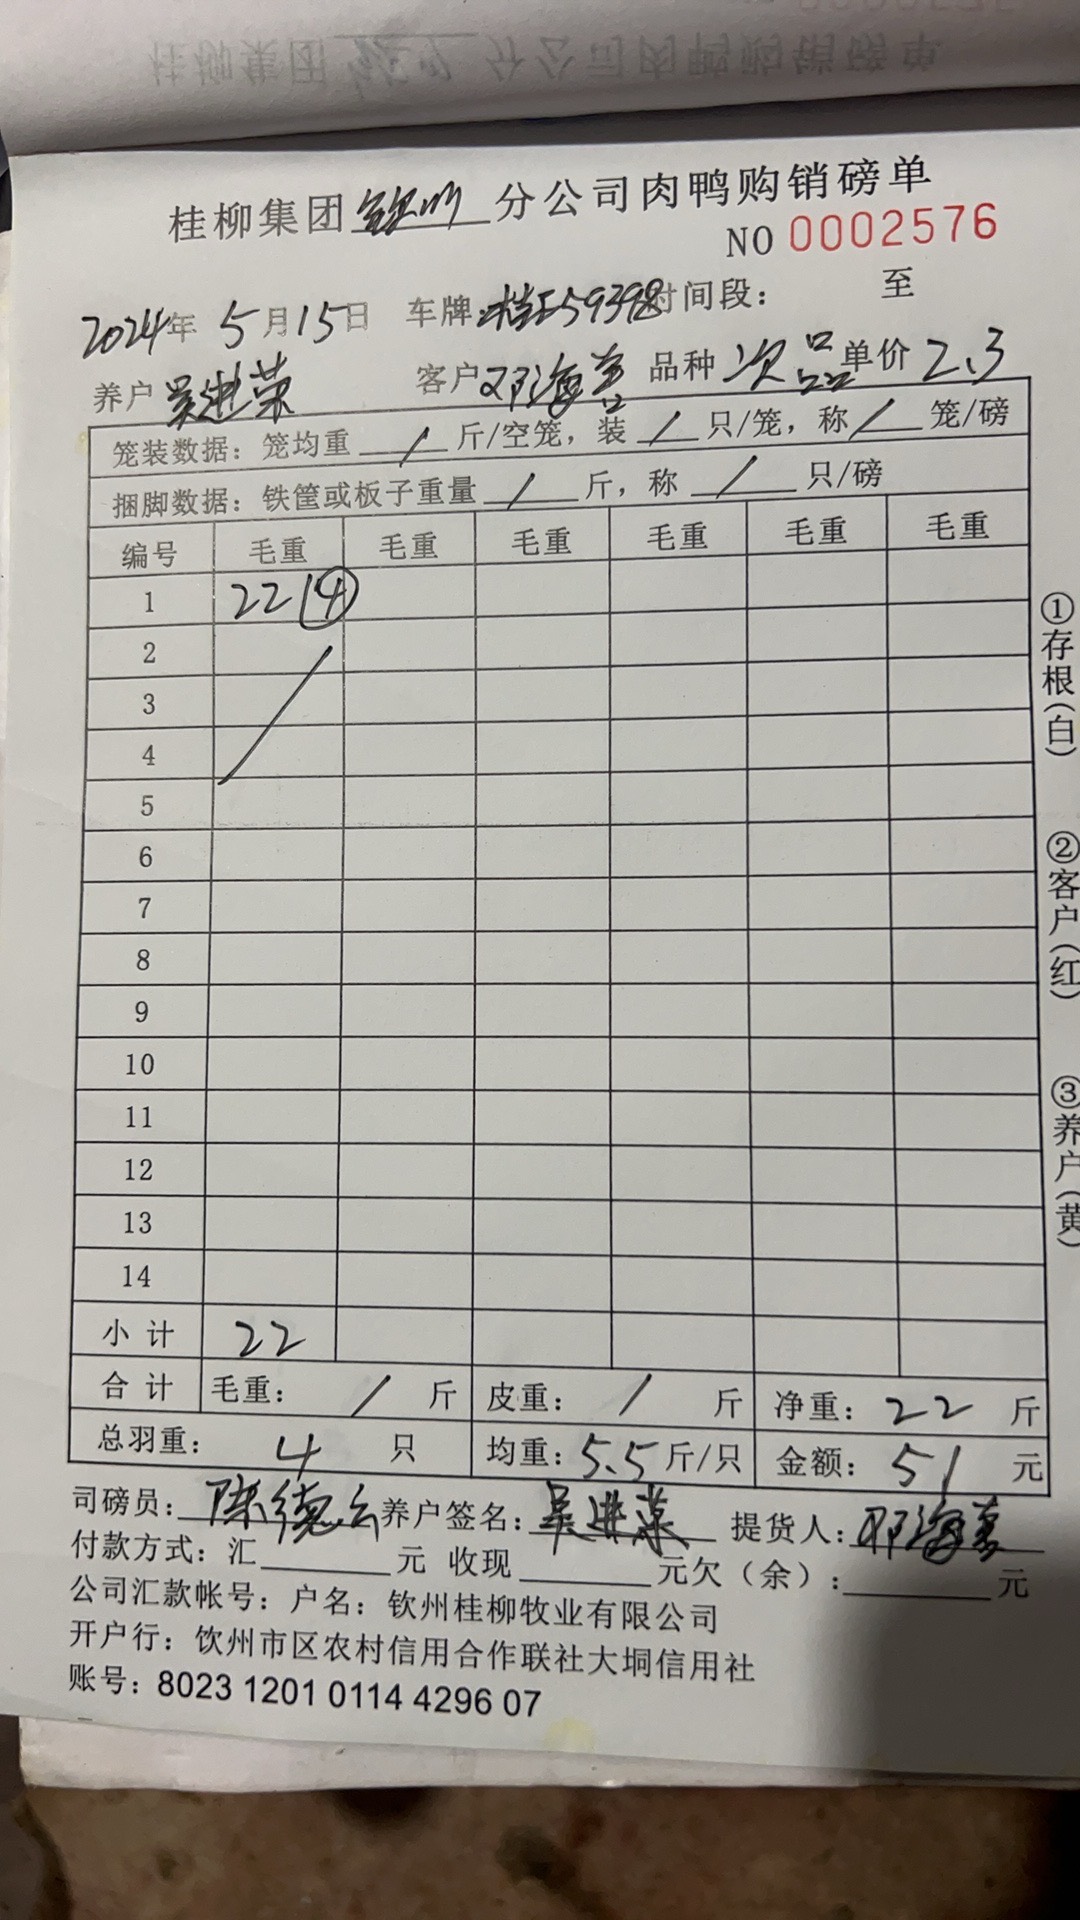 桂柳集团钦州分公司肉鸭购销磅单
NO 0002576
2024年5月15日 车牌:桂E59398时间段： 至
养户吴进荣 客户邓海善 品种次品单价2.3
笼装数据：笼均重 / 斤/空笼，装 / 只/笼，称 / 笼/磅
捆脚数据：铁筐或板子重量 / 斤，称 / 只/磅
编号 毛重 毛重 毛重 毛重 毛重 毛重
1 22 ④
2
3
4
5
6
7
8
9
10
11
12
13
14
小计 22
合计 毛重： / 斤 皮重： / 斤 净重：22 斤
总羽重： 4 只 均重：5.5斤/只 金额：51 元
司磅员：陈德云 养户签名：吴进荣 提货人：邓海善
付款方式：汇 元 收现 元欠（余）： 元
公司汇款帐号：户名：钦州桂柳牧业有限公司
开户行：钦州市区农村信用合作联社大垌信用社
账号：8023 1201 0114 4296 07
①存根(白)
②客户(红)
③养户(黄)